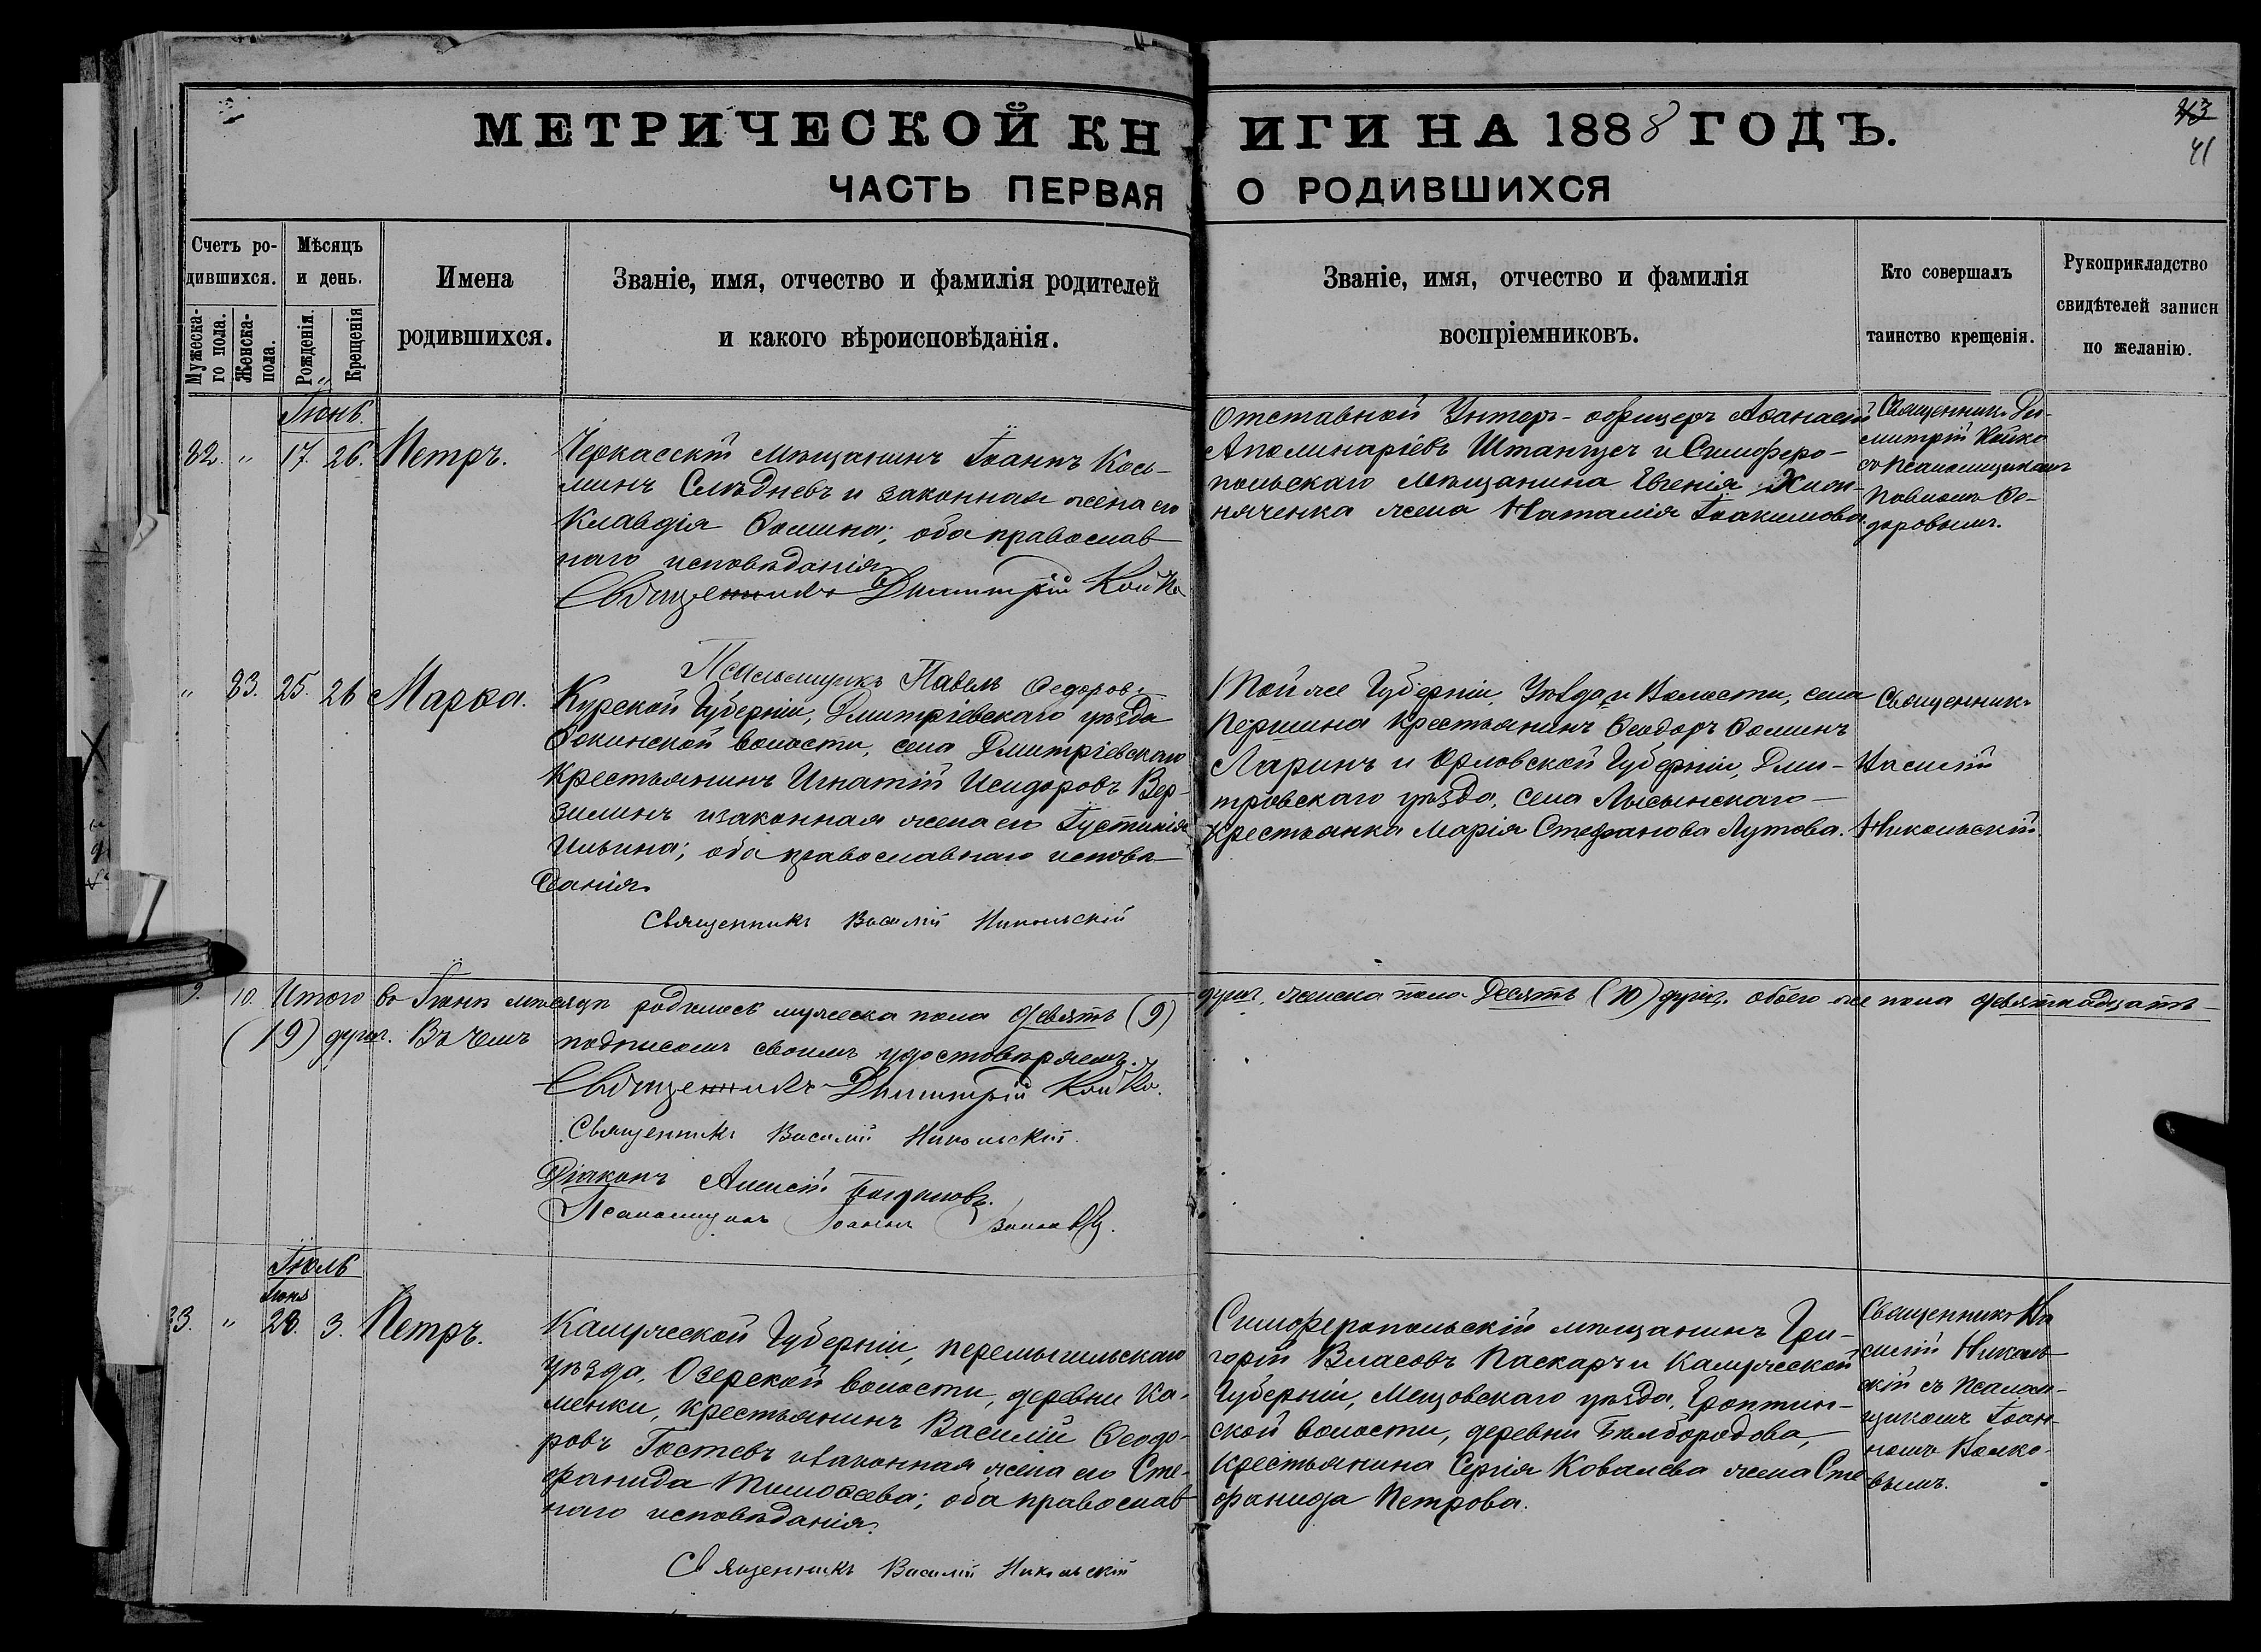 МЕТРИЧЕСКОЙ КНИГИ НА 1888 ГОДЪ.
41
ЧАСТЬ ПЕРВАЯ О РОДИВШИХСЯ
Счетъ ро-
дившихся.
Мужеска-
го пола.
Женска-
пола.
Мѣсяцъ
и день.
Рожденія.
Крещенія
Имена
родившихся.
Званіе, имя, отчество и фамилія родителей
и какого вѣроисповѣданія.
Званіе, имя, отчество и фамилія
воспріемниковъ.
Кто совершалъ
таинство крещенія.
Рукоприкладство
свидѣтелей записи
по желанію.
Іюнь.
82. " 17. 26. Петръ.
Черкасскій мѣщанинъ Іоаннъ Кось-
минъ Слѣдневъ и законная жена его
Клавдія Ѳомина; оба православ-
наго исповѣданія
Священникъ Димитрій Койко
Псаломщикъ Павелъ Ѳедоровъ
Отставной Унтеръ-офицеръ Аѳанасій
Аполинаріевъ Штангеръ и Симферо-
польскаго мѣщанина Евгенія
жена Наталія Іоакимова.
Священникъ Ди-
митрій Койко
съ псаломщикомъ
Павломъ Ѳе-
доровымъ.
" 83. 25. 26 Марѳа.
Курской Губерніи, Дмитріевскаго уѣзда
Фокинской волости, села Дмитріевскаго
Крестьянинъ Игнатій Исидоровъ Вер-
зилинъ и законная жена его Іустинія
Ильина; оба православнаго исповѣ-
данія
Священникъ Василій Никольскій
Той же Губерніи, Уѣзда и Волости, села
Першина крестьянинъ Ѳеодоръ Ѳоминъ
Ларинъ и Орловской Губерніи, Дми-
тровскаго уѣзда, села Лысынскаго
крестьянка Марія Стефанова Лутова.
Священникъ
Василій
Никольскій
9. 10. Итого въ Іюнѣ мѣсяцѣ родилось мужеска пола девять (9) душъ, женска пола десять (10) душъ. обоего же пола девятнадцать
(19) душъ. Въ чемъ подписомъ своимъ удостовѣряемъ.
Священникъ Димитрій Койко.
Священникъ Василій Никольскій.
Діаконъ Алексій
Псаломщикъ Іоаннъ
Іюль
Іюня
33. " 28. 3. Петръ.
Калужской Губерніи, перемышльскаго
уѣзда, Озерской волости, деревни Ка-
менки, крестьянинъ Василій Ѳеодо-
ровъ Гостевъ и законная жена его Сте-
фанида Тимоѳеева; оба православ-
наго исповѣданія.
Священникъ Василій Никольскій
Симферопольскій мѣщанинъ Гри-
горій Власовъ Паскаръ и Калужской
Губерніи, Мещовскаго уѣзда,
ской волости, деревни Бѣлбородова,
крестьянина Сергія Ковалева жена Сте-
фанида Петрова.
Священникъ Ва
силій Николь
скій съ псалом-
щикомъ Іоан-
номъ Волко-
вымъ.